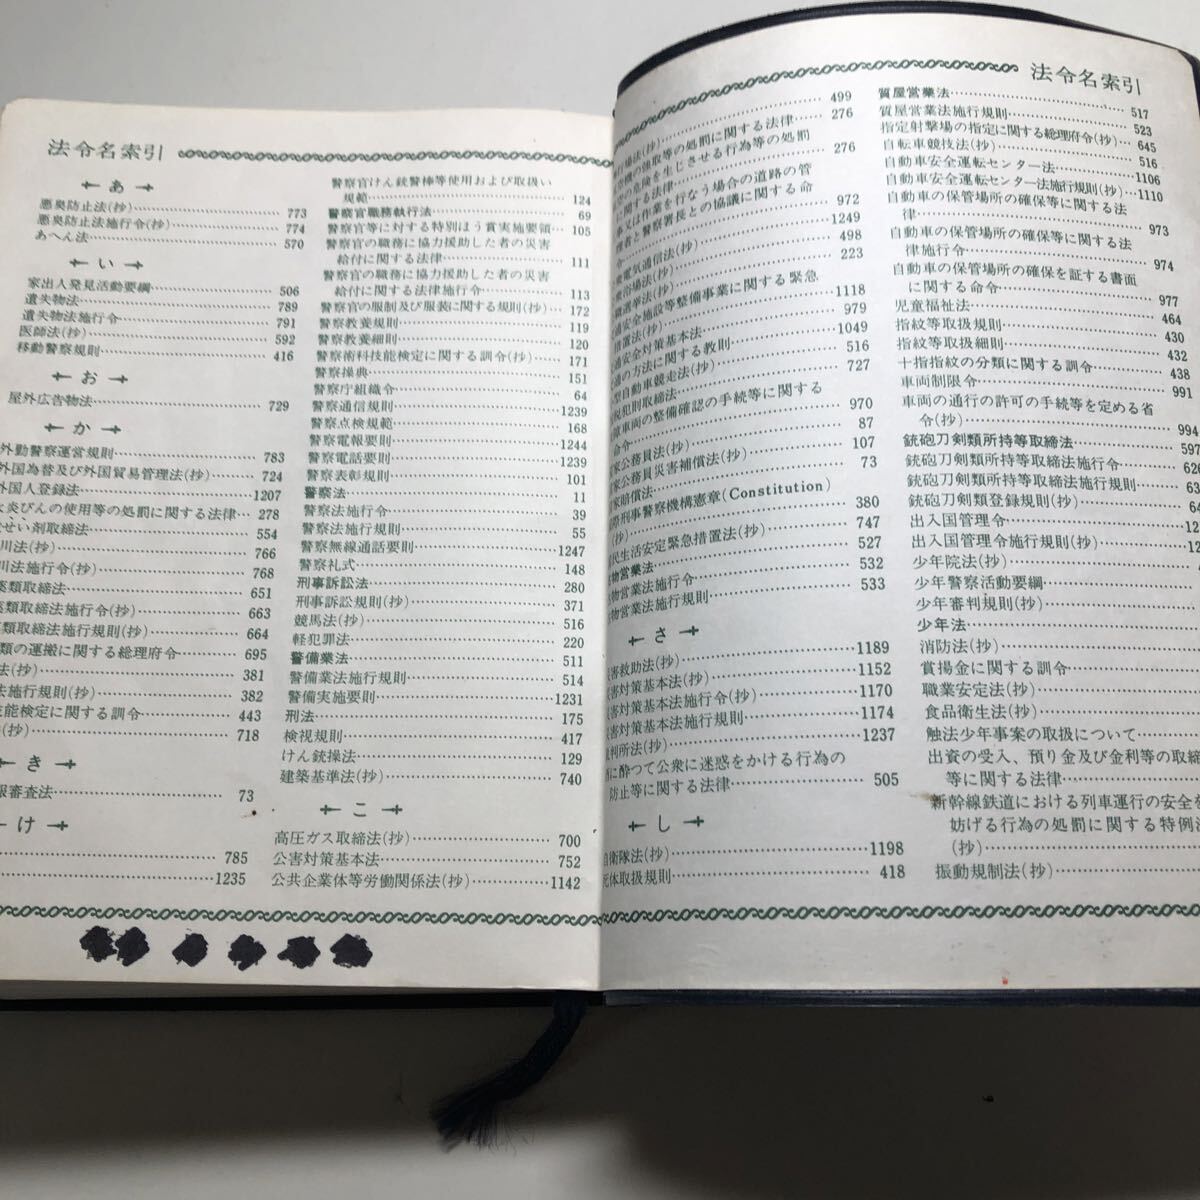 法令名索引
あ
悪臭防止法(抄)……773
悪臭防止法施行令(抄)……774
あへん法……570
い
家出人発見活動要綱……506
遺失物法……789
遺失物法施行令……791
医師法(抄)……592
移動警察規則……416
お
屋外広告物法……729
か
外勤警察運営規則……783
外国為替及び外国貿易管理法(抄)……724
外国人登録法……1207
火炎びんの使用等の処罰に関する法律…278
せい剤取締法……554
川法(抄)……766
川法施行令(抄)……768
類取締法……651
類取締法施行令(抄)……663
類取締法施行規則(抄)……664
類の運搬に関する総理府令……695
法(抄)……381
法施行規則(抄)……382
技能検定に関する訓令……443
(抄)……718
き
報審査法……73
け
……785
……1235
警察官けん銃警棒等使用および取扱い
規範……124
警察官職務執行法……69
警察官等に対する特別ほう賞実施要領…105
警察官の職務に協力援助した者の災害
給付に関する法律……111
警察官の職務に協力援助した者の災害
給付に関する法律施行令……113
警察官の服制及び服装に関する規則(抄)…172
警察教養規則……119
警察教養細則……120
警察術科技能検定に関する訓令(抄)……171
警察操典……151
警察庁組織令……64
警察通信規則……1239
警察点検規範……168
警察電報要則……1244
警察電話要則……1239
警察表彰規則……101
警察法……11
警察法施行令……39
警察法施行規則……55
警察無線通話要則……1247
警察礼式……148
刑事訴訟法……280
刑事訴訟規則(抄)……371
競馬法(抄)……516
軽犯罪法……220
警備業法……511
警備業法施行規則……514
警備実施要則……1231
刑法……175
検視規則……417
けん銃操法……129
建築基準法(抄)……740
こ
高圧ガス取締法(抄)……700
公害対策基本法……752
公共企業体等労働関係法(抄)……1142
法令名索引
場法(抄)……499
空機の強取等の処罰に関する法律……276
の危険を生じさせる行為等の処罰
に関する法律……276
事又は作業を行なう場合の道路の管
理者と警察署長との協議に関する命
令……972
衆電気通信法(抄)……1249
衆浴場法(抄)……498
職選挙法(抄)……223
通安全施設等整備事業に関する緊急
措置法(抄)……1118
通安全対策基本法……979
通の方法に関する教則……1049
型自動車競走法(抄)……516
税犯則取締法……727
障車両の整備確認の手続等に関する
命令……970
家公務員法(抄)……87
家公務員災害補償法(抄)……107
家賠償法……73
際刑事警察機構憲章(Constitution)
(抄)……380
民生活安定緊急措置法(抄)……747
物営業法……527
物営業法施行令……532
物営業法施行規則……533
さ
害救助法(抄)……1189
害対策基本法(抄)……1152
害対策基本法施行令(抄)……1170
害対策基本法施行規則……1174
判所法(抄)……1237
に酔つて公衆に迷惑をかける行為の
防止等に関する法律……505
し
自衛隊法(抄)……1198
死体取扱規則……418
質屋営業法……517
質屋営業法施行規則……523
指定射撃場の指定に関する総理府令(抄)…645
自転車競技法(抄)……516
自動車安全運転センター法……1106
自動車安全運転センター法施行規則(抄)…1110
自動車の保管場所の確保等に関する法
律……973
自動車の保管場所の確保等に関する法
律施行令……974
自動車の保管場所の確保を証する書面
に関する命令……977
児童福祉法……464
指紋等取扱規則……430
指紋等取扱細則……432
十指指紋の分類に関する訓令……438
車両制限令……991
車両の通行の許可の手続等を定める省
令(抄)……994
銃砲刀剣類所持等取締法……597
銃砲刀剣類所持等取締法施行令……626
銃砲刀剣類所持等取締法施行規則……63
銃砲刀剣類登録規則(抄)……64
出入国管理令……12
出入国管理令施行規則(抄)……12
少年院法(抄)……
少年警察活動要綱……
少年審判規則(抄)……
少年法……
消防法(抄)……
賞揚金に関する訓令……
職業安定法(抄)……
食品衛生法(抄)……
触法少年事案の取扱について……
出資の受入、預り金及び金利等の取締
等に関する法律……
新幹線鉄道における列車運行の安全を
妨げる行為の処罰に関する特例法
(抄)……
振動規制法(抄)……